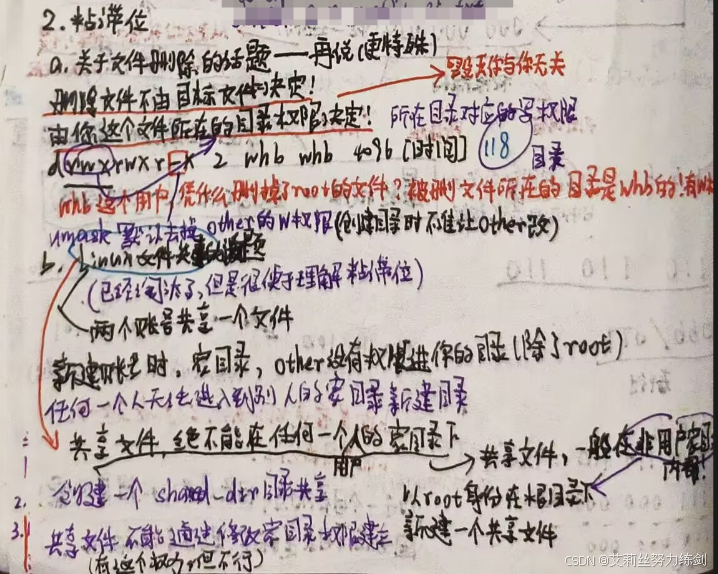 2. 粘滞位
a. 关于文件删除的话题——再谈(更特殊)
删除文件不由目标文件决定! 
与你无关
由你这个文件所在的目录权限决定! 所在目录对应的写权限
drwxrwxr-x 2 whb whb 4096 [时间] 118 目录
whb这个用户,凭什么删掉了root的文件?被删文件所在的目录是whb的!有w
umask默认去掉other的w权限(创建目录时不准让other改)
b. Linux文件共享的问题
(已经阐述了,但是很便于理解粘滞位)
两个账号共享一个文件
新建账号时,家目录,other没有权限进你的目录(除了root)
任何一个人无法进入到别人的家目录新建目录
共享文件,绝不能在任何一个人的家目录下
用户
共享文件,一般在非用户家目录
内部!
2. 会创建一个 shared_dir目录共享
以root身份在根目录下
新建一个共享文件
3. 共享文件不能通过修改家目录权限建立
(有这个权力,但不行)
CSDN @艾莉丝努力练剑